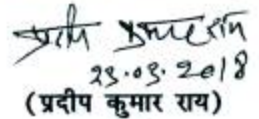 प्रदीप कुमार राय
23.03.2018
(प्रदीप कुमार राय)